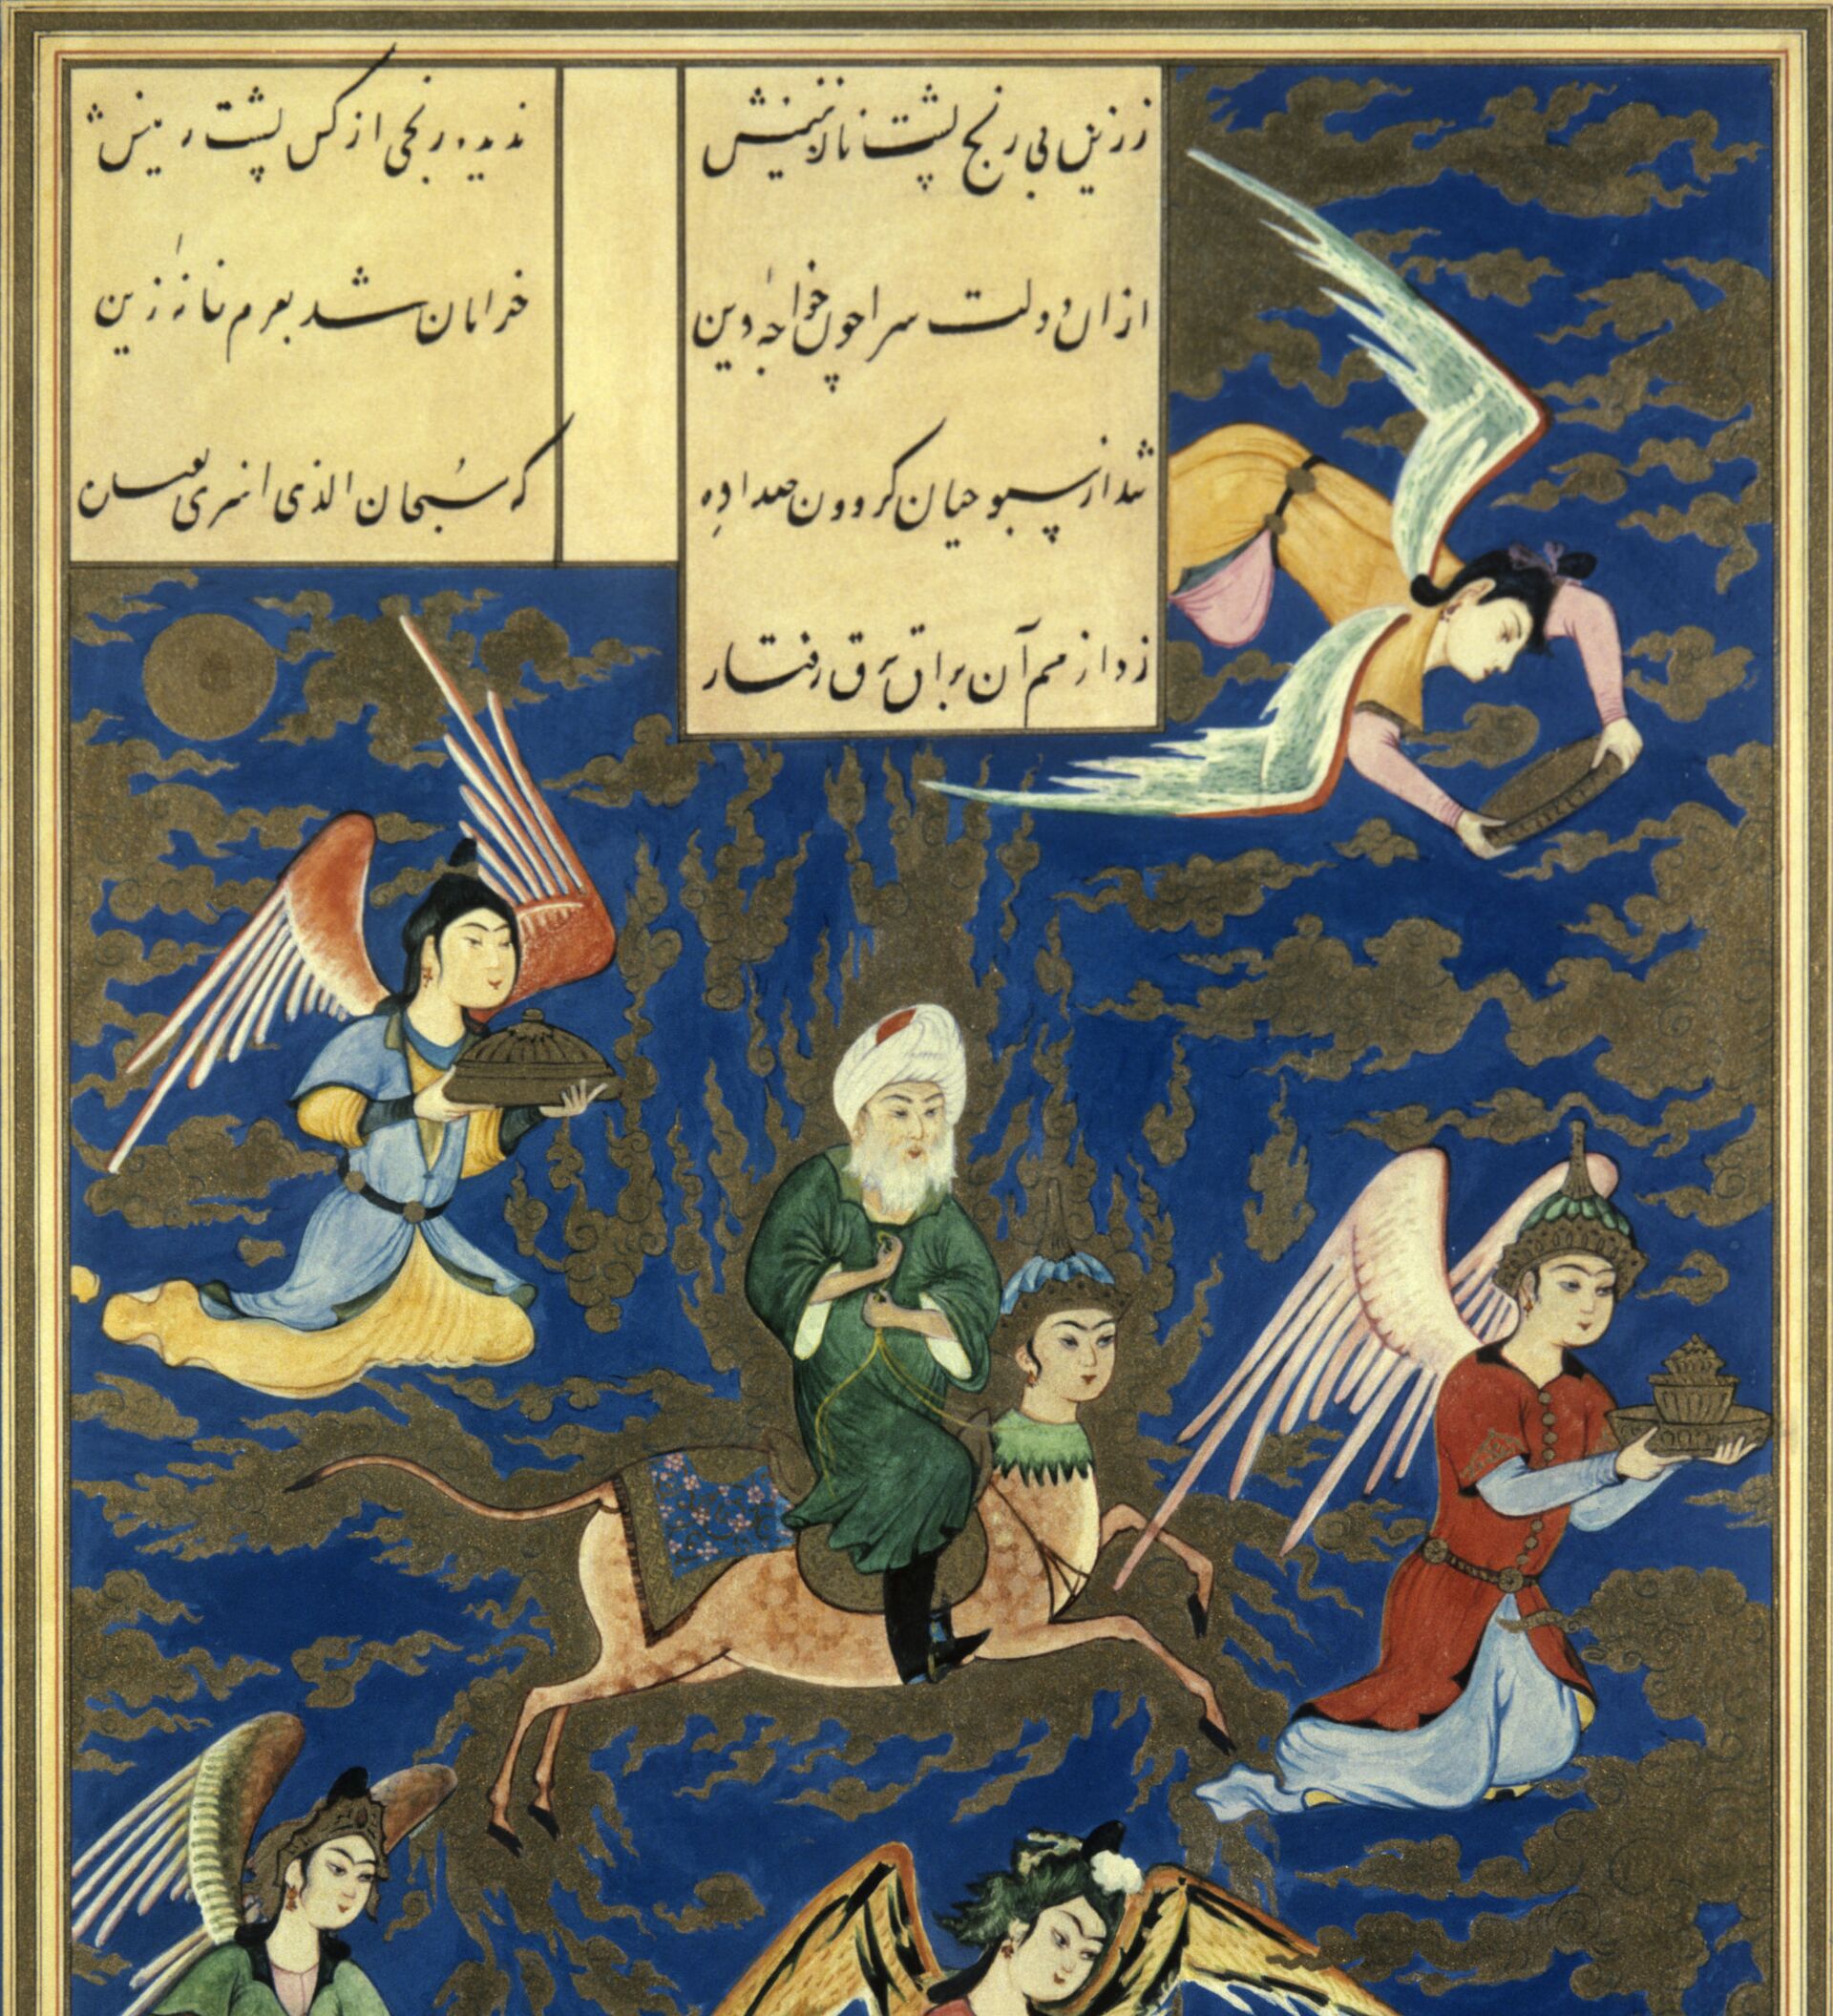 ز زین بی رنج پشت نازنینش ندیده رنجی از کس پشت زینش
ازان دولت سرا چون خواجه دین خرامان شد بعزم خانه زین
شد از سبوحیان گردون صدا ده که سبحان الذی اسری بعبده
زد از هم آن براق برق رفتار